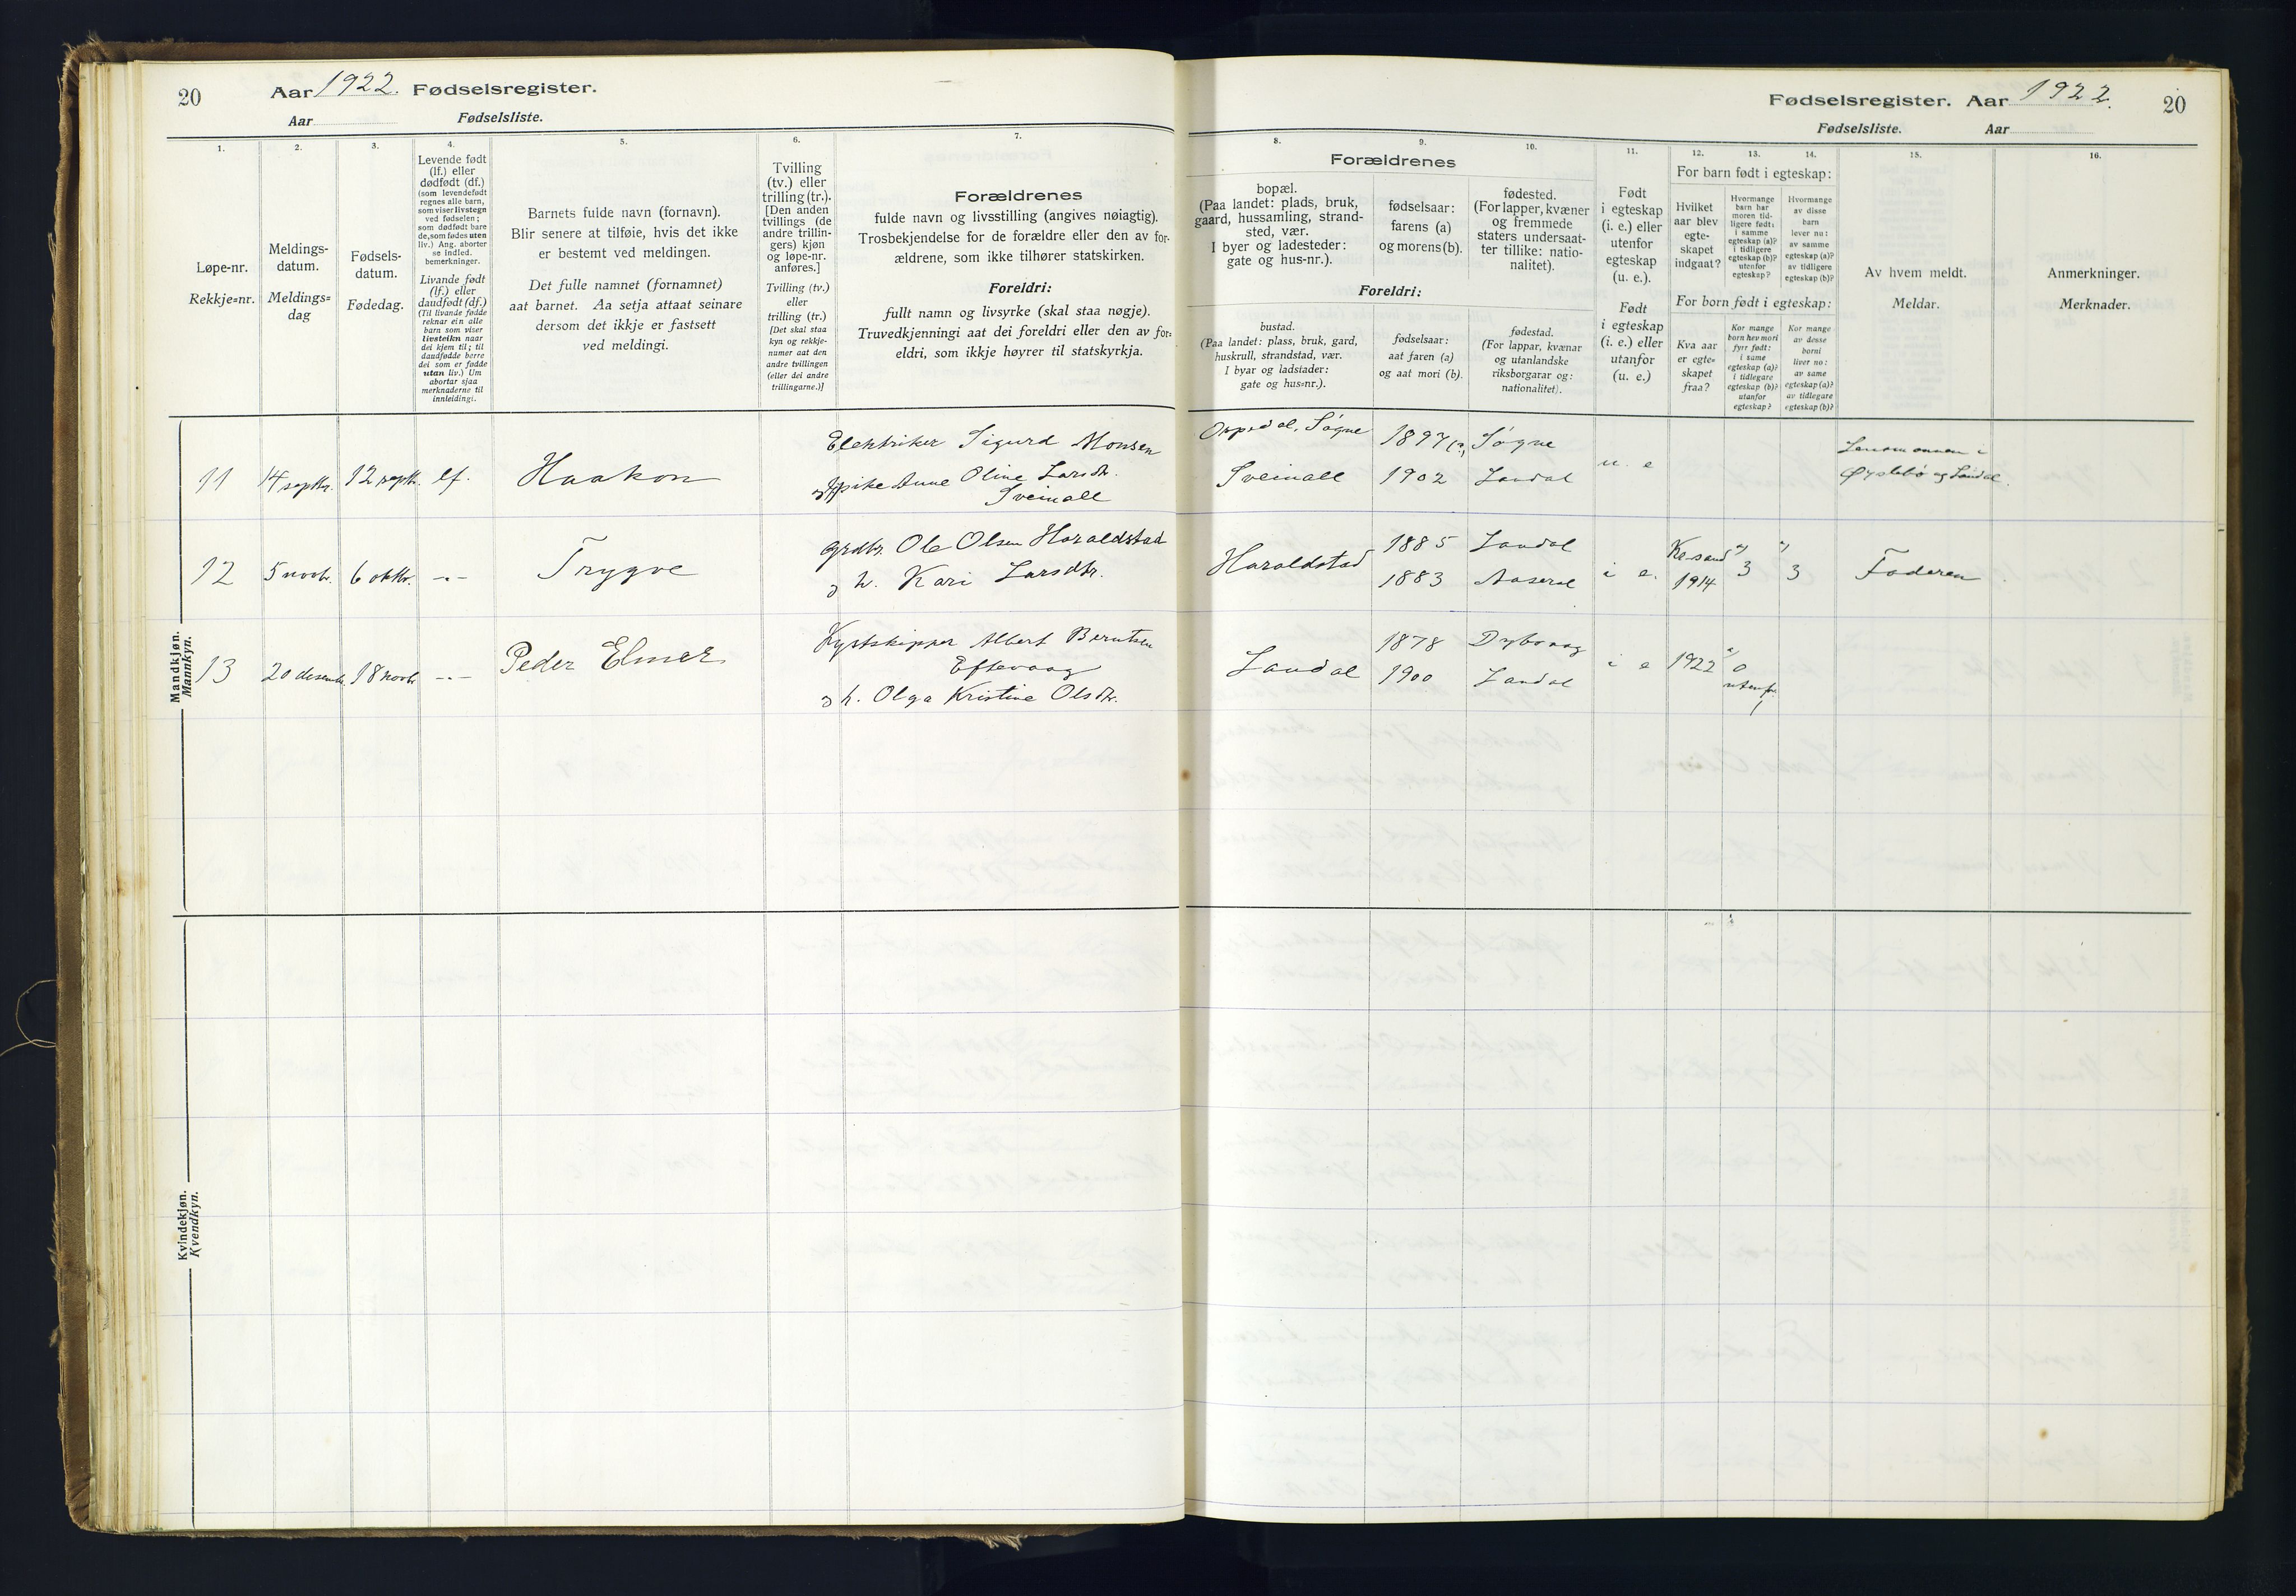 20
Aar 1922. Fødselsregister.
Aar Fødselsliste.
1.
2.
3.
4.
5.
6.
7.
Løpe-nr.
Rekkje=nr.
Meldings-
datum.
Meldings=
dag
Fødsels-
datum.
Fødedag.
Levende født
(lf.) eller
dødfødt (df.)
(som levendefødt
regnes alle barn,
som viser livstegn
ved fødselen;
som dødfødt bare
de, som fødes uten
liv.) Ang. aborter
se indled.
bemerkninger.
Livande født
(lf.) eller
daudfødt (df.)
(Til livande fødde
reknar ein alle
barn som viser
livsteikn naar
dei kjem til; til
daudfødde berre
dei som er fødde
utan liv.) Um
abortar sjaa
merknaderne til
innleidingi.
Barnets fulde navn (fornavn).
Blir senere at tilføie, hvis det ikke
er bestemt ved meldingen.
Det fulle namnet (fornamnet)
aat barnet. Aa setja attaat seinare
dersom det ikkje er fastsett
ved meldingi.
Tvilling
(tv.) eller
trilling (tr.).
[Den anden
tvillings (de
andre trillin-
gers) kjøn
og løpe-nr.
anføres.]
Tvilling (tv.)
eller
trilling (tr.)
[Det skal staa
kyn og rekkje-
numer aat den
andre tvillingen
(eller dei andre
trillingarne.)]
Forældrenes
fulde navn og livsstilling (angives nøiagtig).
Trosbekjendelse for de forældre eller den av for-
ældrene, som ikke tilhører statskirken.
Foreldri:
fullt namn og livsyrke (skal staa nøgje).
Truvedkjenningi aat dei foreldri eller den av for=
eldri, som ikkje høyrer til statskyrkja.
Mandkjøn.
Mannkyn.
11 14 septbr. 12 septbr. lf. Haakon
Elektriker Sigurd Monsen
og pike Anne Oline Larsdtr.
Sveinall
12 5 novbr. 6 oktbr. -"- Trygve
grdbr. Ole Olsen Haraldstad
og h. Kari Larsdtr.
13 20 desembr. 18 novbr -"- Peder Elmer
Kystskipper Albert Berntsen
Eftevaag
og h. Olga Kristine Olsdtr.
Kvindekjøn.
Kvendkyn.
Fødselsregister. Aar 1922. 20
Fødselsliste. Aar
8.
9.
10.
11.
12.
13.
14.
15.
16.
Forældrenes
bopæl.
(Paa landet: plads, bruk,
gaard, hussamling, strand-
sted, vær.
I byer og ladesteder:
gate og hus-nr.).
fødselsaar:
farens (a)
og morens (b).
fødested.
(For lapper, kvæner
og fremmede
staters undersaat-
ter tillike: natio-
nalitet).
Foreldri:
bustad.
(Paa landet: plass, bruk, gard,
huskrull, strandstad, vær.
I byar og ladstader:
gate og hus=nr.).
fødselsaar:
aat faren (a)
og aat mori (b).
fødestad.
(For lappar, kvænar
og utanlandske
riksborgarar og:
nationalitet).
Født
i egteskap
(i. e.) eller
utenfor
egteskap
(u. e.).
Født
i egteskap
(i. e.) eller
utanfor
egteskap
(u. e.)
For barn født i egteskap:
Hvilket
aar blev
egte-
skapet
indgaat?
Hvormange
barn har
moren tid-
ligere født:
i samme
egteskap (a)?
i tidligere
egteskap (b)?
utenfor
egteskap?
Hvormange
av disse
barn
lever nu:
av samme
egteskap (a)?
av tidligere
egteskap (b)?
For born født i egteskap:
Kva aar
er egte=
skapet
fraa?
Kor mange
born hev mori
fyrr født:
i same
egteskap (a)?
i tidlegare
egteskap (b)?
utanfor
egteskap?
Kor mange
av desse
borni
liver no:
av same
egteskap (a)?
av tidlegare
egteskap (b)?
Av hvem meldt.
Meldar.
Anmerkninger.
Merknader.
Søgne 1897 (?) Søgne
Sveinall 1902 Laudal
u. e
Lensmannen i
Øyslebø og Laudal.
Haraldstad
1885 Laudal
1883 Aaseral
i e.
Kr.sand
1914
a) 3
a) 3
Faderen
Laudal
1878 Dybvaag
1900 Laudal
i e 1922
a) 0
utenfor
1